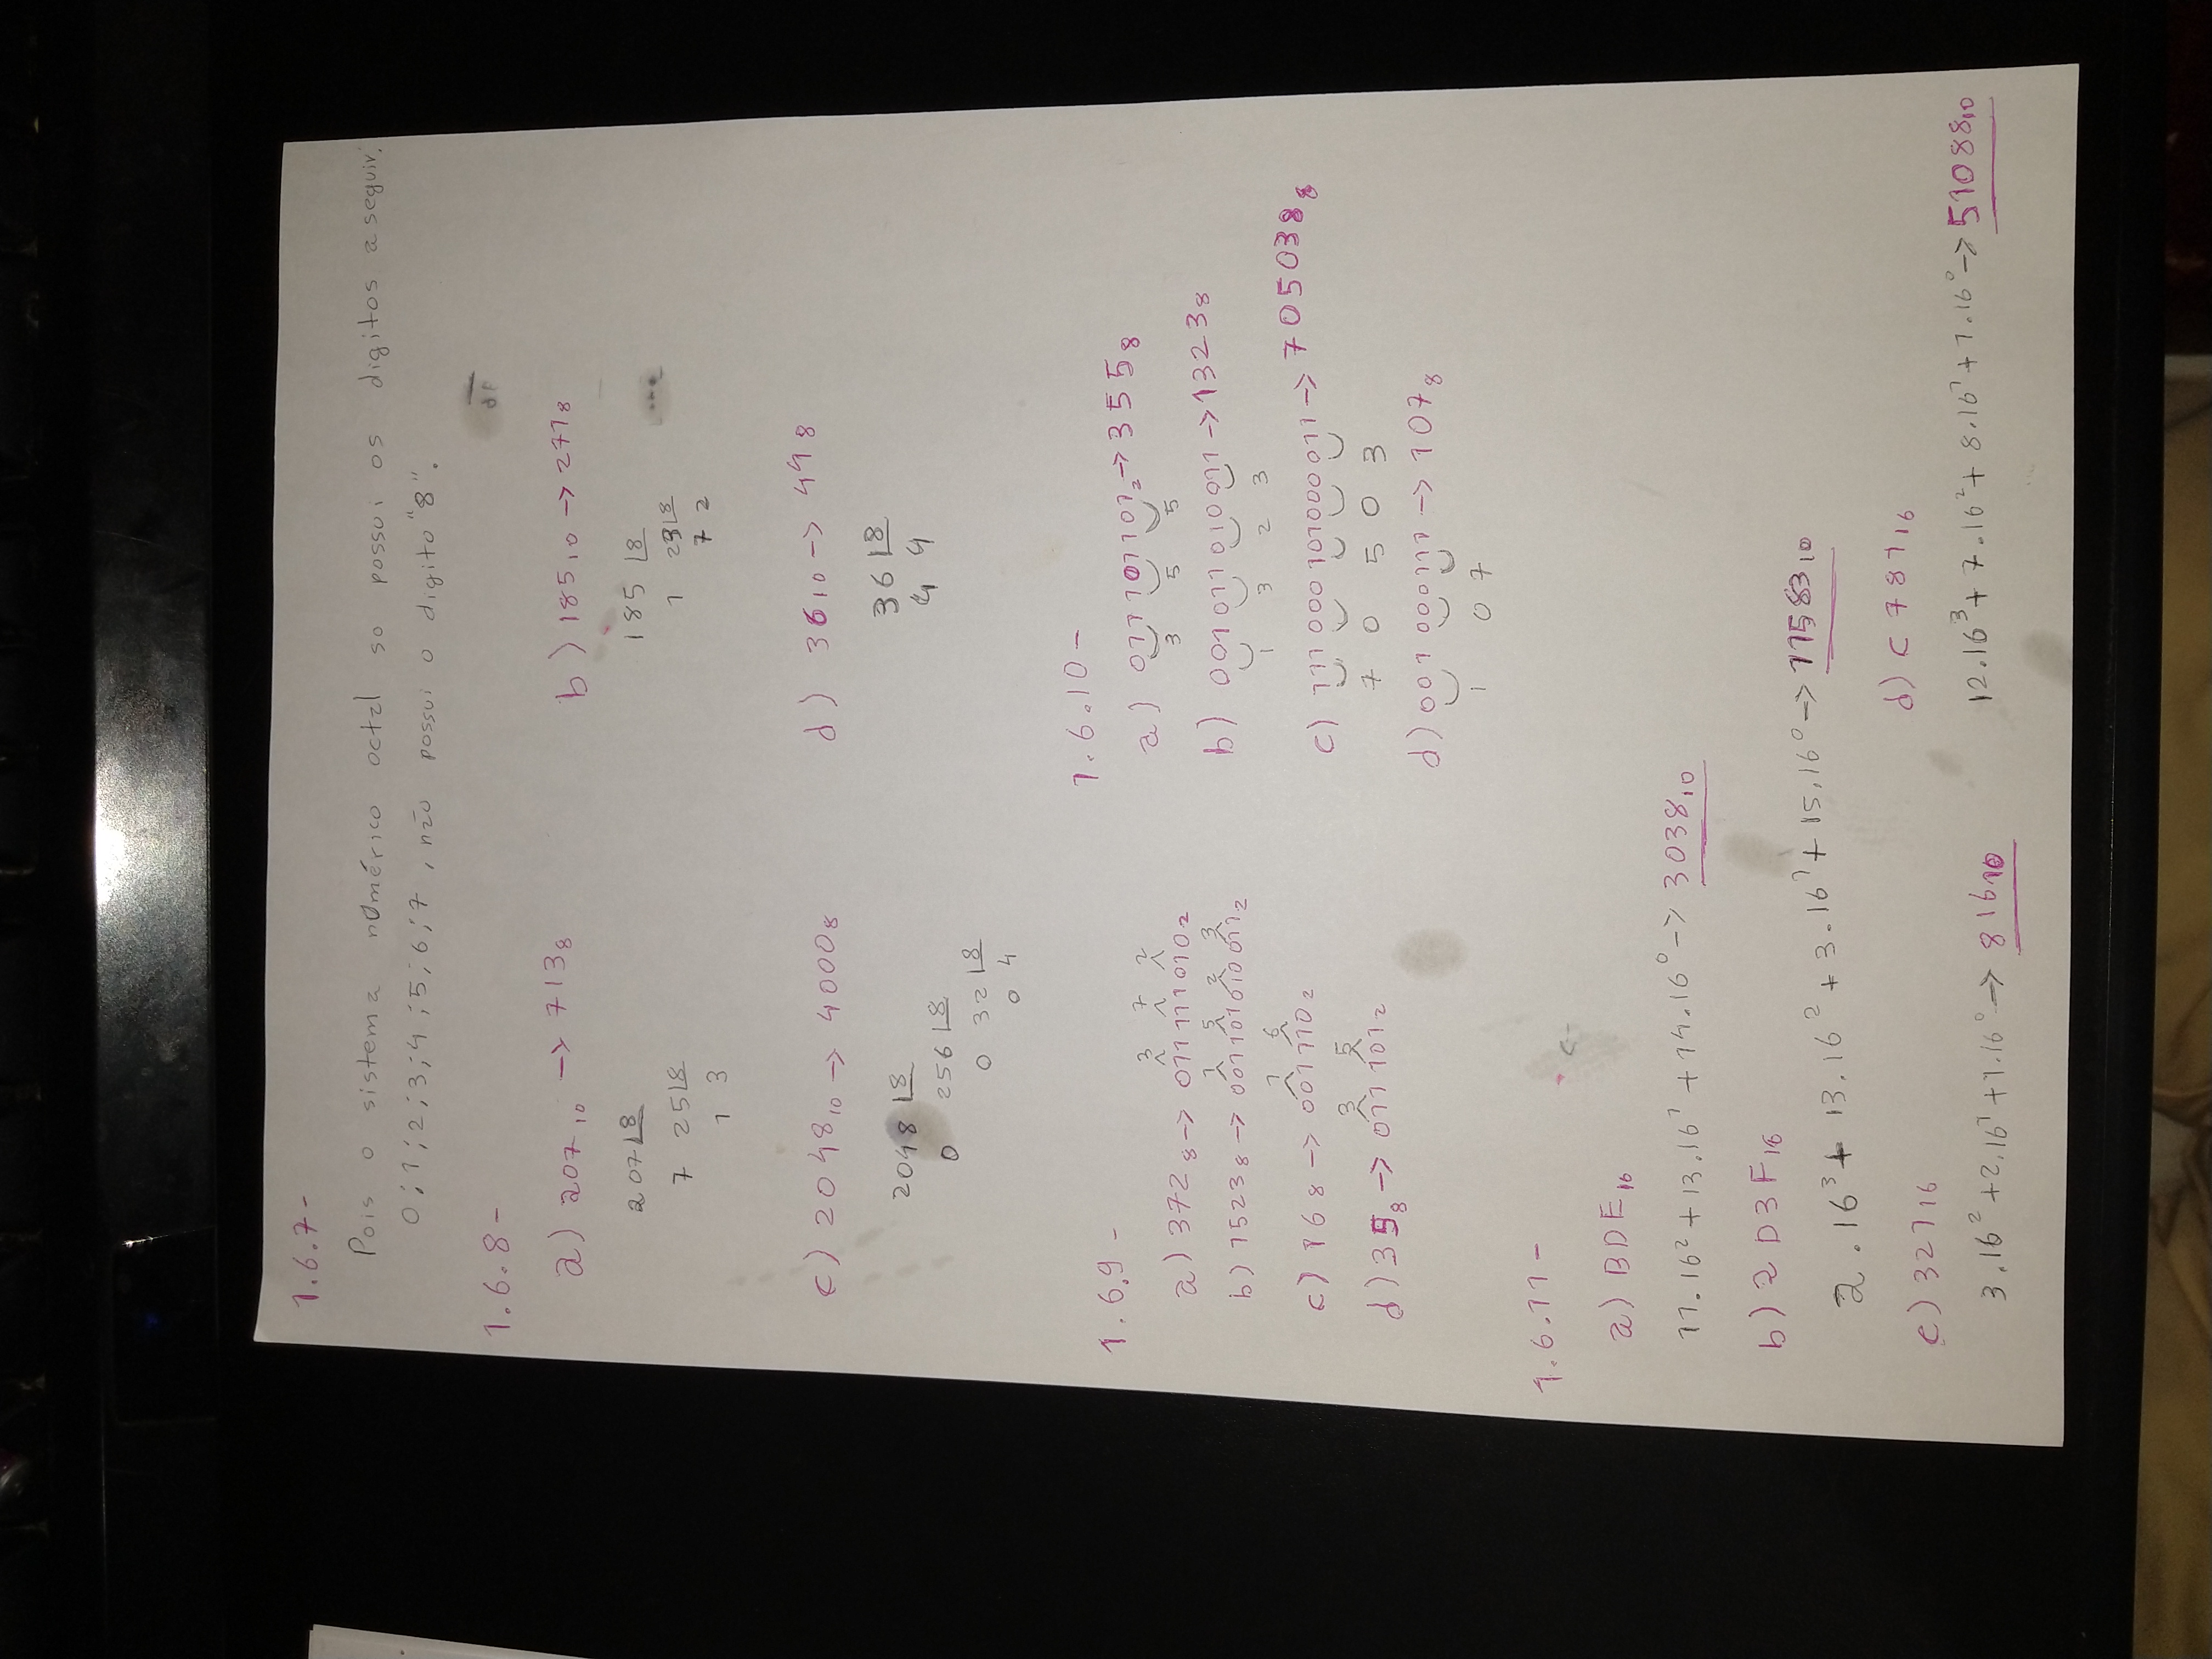 1.6.7-
Pois o sistema numérico octal so possui os digitos a seguir:
0;1;2;3;4;5;6;7, não possui o digito "8".
1.6.8-
a) 207₁₀ -> 713₈
207 8
7 25 8
1 3
b) 185₁₀ -> 271₈
185 8
1 23 8
7 2
c) 2048₁₀ -> 4000₈
2048 8
0 256 8
0 32 8
0 4
d) 36₁₀ -> 44₈
36 8
4 4
1.6.9-
3 7 2
a) 372₈ -> 011 111 010₂
1 5 2 3
b) 1523₈ -> 001 101 010 011₂
1 6
c) 16₈ -> 001 110₂
3 5
d) 35₈ -> 011 101₂
1.6.10-
a) 011 101 101₂ -> 355₈
3 5 5
b) 001 011 010 011 -> 1323₈
1 3 2 3
c) 111 000 101 000 011 -> 705038₈
7 0 5 0 3
d) 001 000 111 -> 107₈
1 0 7
1.6.11-
a) BDE₁₆
11.16² + 13.16¹ + 14.16⁰ -> 3038₁₀
b) 2D3F₁₆
2.16³ + 13.16² + 3.16¹ + 15.16⁰ -> 11583₁₀
c) 321₁₆
3.16² + 2.16¹ + 1.16⁰ -> 816₁₀
d) C781₁₆
12.16³ + 7.16² + 8.16¹ + 1.16⁰ -> 51088₁₀